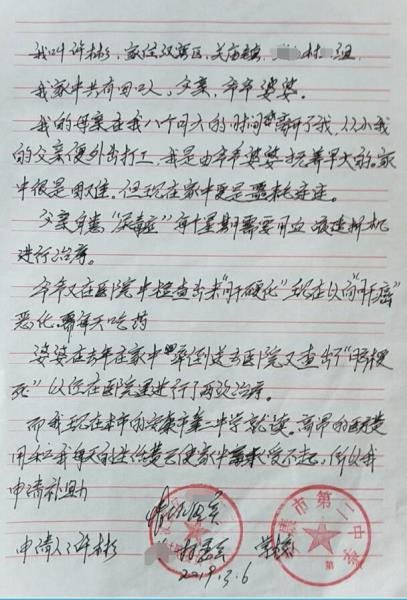 我叫许彬，家住汉滨区，关庙镇，村组
我家中共有四口人，父亲，爷爷婆婆。
我的母亲在我八个月大的时间离开了我，从小我
的父亲便外出打工，我是由爷爷婆婆抚养长大的。家
中很是困难，但现在家中更是噩耗连连。
父亲身患“尿毒症”每个星期需要用血液透析机
进行治疗。
爷爷又在医院中检查出来“肝硬化”现在又向“肝癌”
恶化，需每天吃药
婆婆在去年在家中晕倒送去医院又查出了“脑梗
死”以经在医院里进行了两次治疗。
而我现在本市的安康市第二中学就读。高昂的医药费
用和我每天的生活费已使家中承受不起，所以我
申请补助
情况属实
申请人：许彬 村委会 学校
2019.3.6
康市第二中学